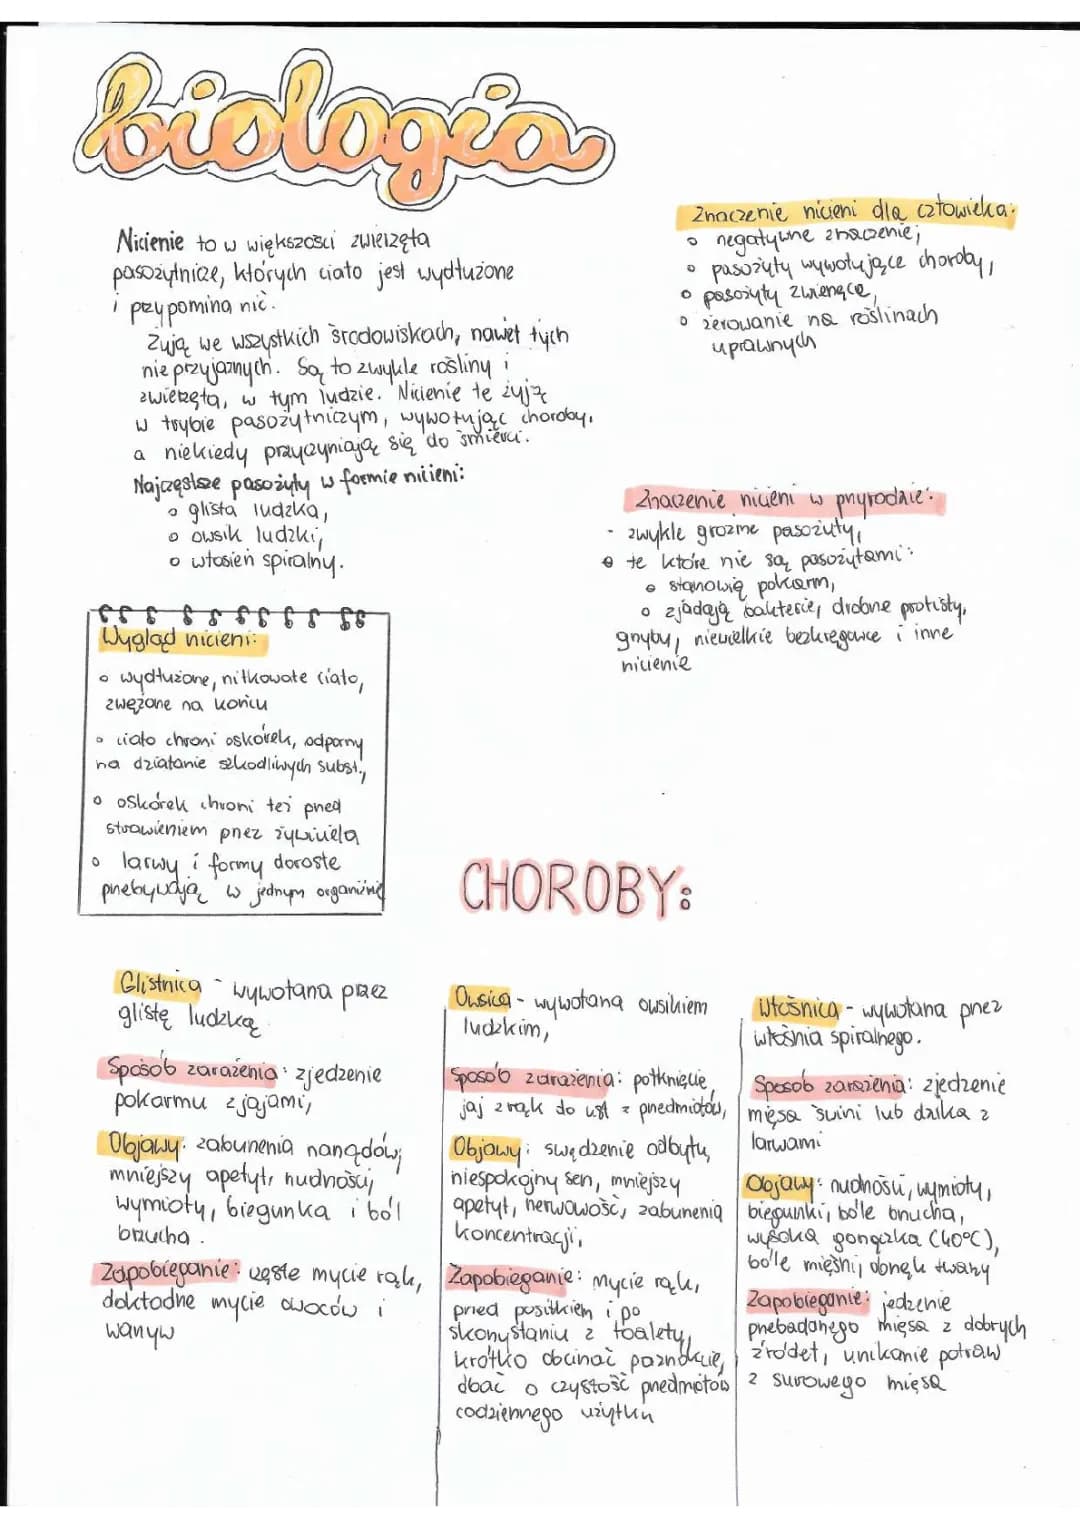 biologia
Nicienie to w większości zwierzęta
pasożytnicze, których ciało jest wydłużone
i przypomina nić.
Żyją we wszystkich środowiskach, nawet tych
nieprzyjaznych. Są to zwykle rośliny i
zwierzęta, w tym ludzie. Nicienie te żyją
w trybie pasożytniczym, wywołując choroby,
a niekiedy przyczyniają się do śmierci.
Najczęstsze pasożyty w formie nicieni:
o glista ludzka,
o owsik ludzki,
o włosień spiralny.
Znaczenie nicieni dla człowieka:
o negatywne znaczenie;
o pasożyty wywołujące choroby,
o pasożyty zwierzęce,
o żerowanie na roślinach
uprawnych
Znaczenie nicieni w przyrodzie:
- zwykle groźne pasożyty,
o te które nie są pasożytami:
o stanowią pokarm,
o zjadają bakterie, drobne protisty,
grzyby, niewielkie bezkręgowce i inne
nicienie
Wygląd nicieni:
o wydłużone, nitkowate ciało,
zwężone na końcu
o ciało chroni oskórek, odporny
na działanie szkodliwych subst.,
o oskórek chroni też przed
strawieniem przez żywiciela
o larwy i formy dorosłe
przebywają w jednym organizmie
CHOROBY:
Glistnica - wywołana przez
glistę ludzką
Sposób zarażenia: zjedzenie
pokarmu z jajami,
Objawy: zaburzenia narządów,
mniejszy apetyt, nudności,
wymioty, biegunka i ból
brzucha.
Zapobieganie: częste mycie rąk,
dokładne mycie owoców i
warzyw
Owsica - wywołana owsikiem
ludzkim,
Sposób zarażenia: połknięcie
jaj z rąk do ust z przedmiotów,
Objawy: swędzenie odbytu,
niespokojny sen, mniejszy
apetyt, nerwowość, zaburzenia
koncentracji,
Zapobieganie: mycie rąk,
przed posiłkiem i po
skorzystaniu z toalety,
krótko obcinać paznokcie,
dbać o czystość przedmiotów
codziennego użytku
Włośnica - wywołana przez
włośnia spiralnego.
Sposób zarażenia: zjedzenie
mięsa świni lub dzika z
larwami
Objawy: nudności, wymioty,
biegunki, bóle brzucha,
wysoka gorączka (40°C),
bóle mięśni, obrzęk twarzy
Zapobieganie: jedzenie
przebadanego mięsa z dobrych
źródeł, unikanie potraw
z surowego mięsa